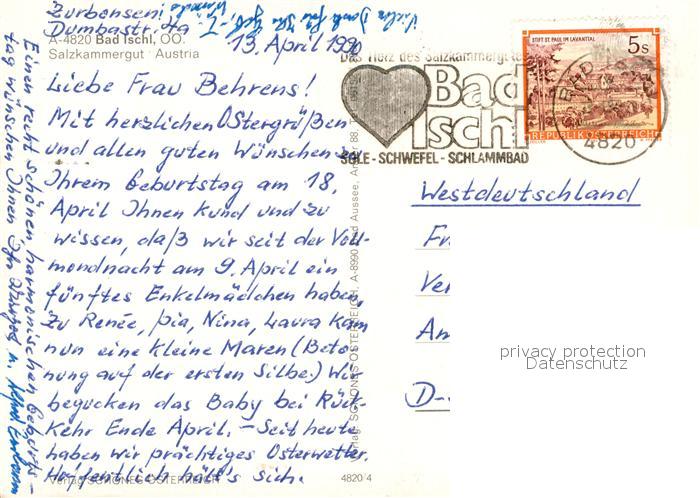 Zurbensen
Dumbastr. 4a
13. April 1990
A-4820 Bad Ischl, OÖ.
Salzkammergut · Austria
Liebe Frau Behrens!
Mit herzlichen Ostergrüßen
und allen guten Wünschen z.
Ihrem Geburtstag am 18.
April Ihnen kund und zu
wissen, daß wir seit der Voll-
mondnacht am 9. April ein
fünftes Enkelmädchen haben,
Zu Renée, Pia, Nina, Laura kam
nun eine kleine Maren (Beto-
nung auf der ersten Silbe.) Wir
begucken das Baby bei Rück-
kehr Ende April. – Seit heute
haben wir prächtiges Osterwetter.
Hoffentlich hält's sich.
Einen recht schönen harmonischen Geburts-
tag wünschen Ihnen Ihr
Verlag SCHÖNES ÖSTERREICH
4820/4
Verlag SCHÖNES ÖSTERREICH, A-8990 Bad Aussee,
Das Herz des Salzkammergutes
Bad
Ischl
SOLE - SCHWEFEL - SCHLAMMBAD
STIFT ST. PAUL IM LAVANTTAL
5s
REPUBLIK ÖSTERREICH
BAD
4820
Westdeutschland
Fr
Ver
An
D-
privacy protection
Datenschutz